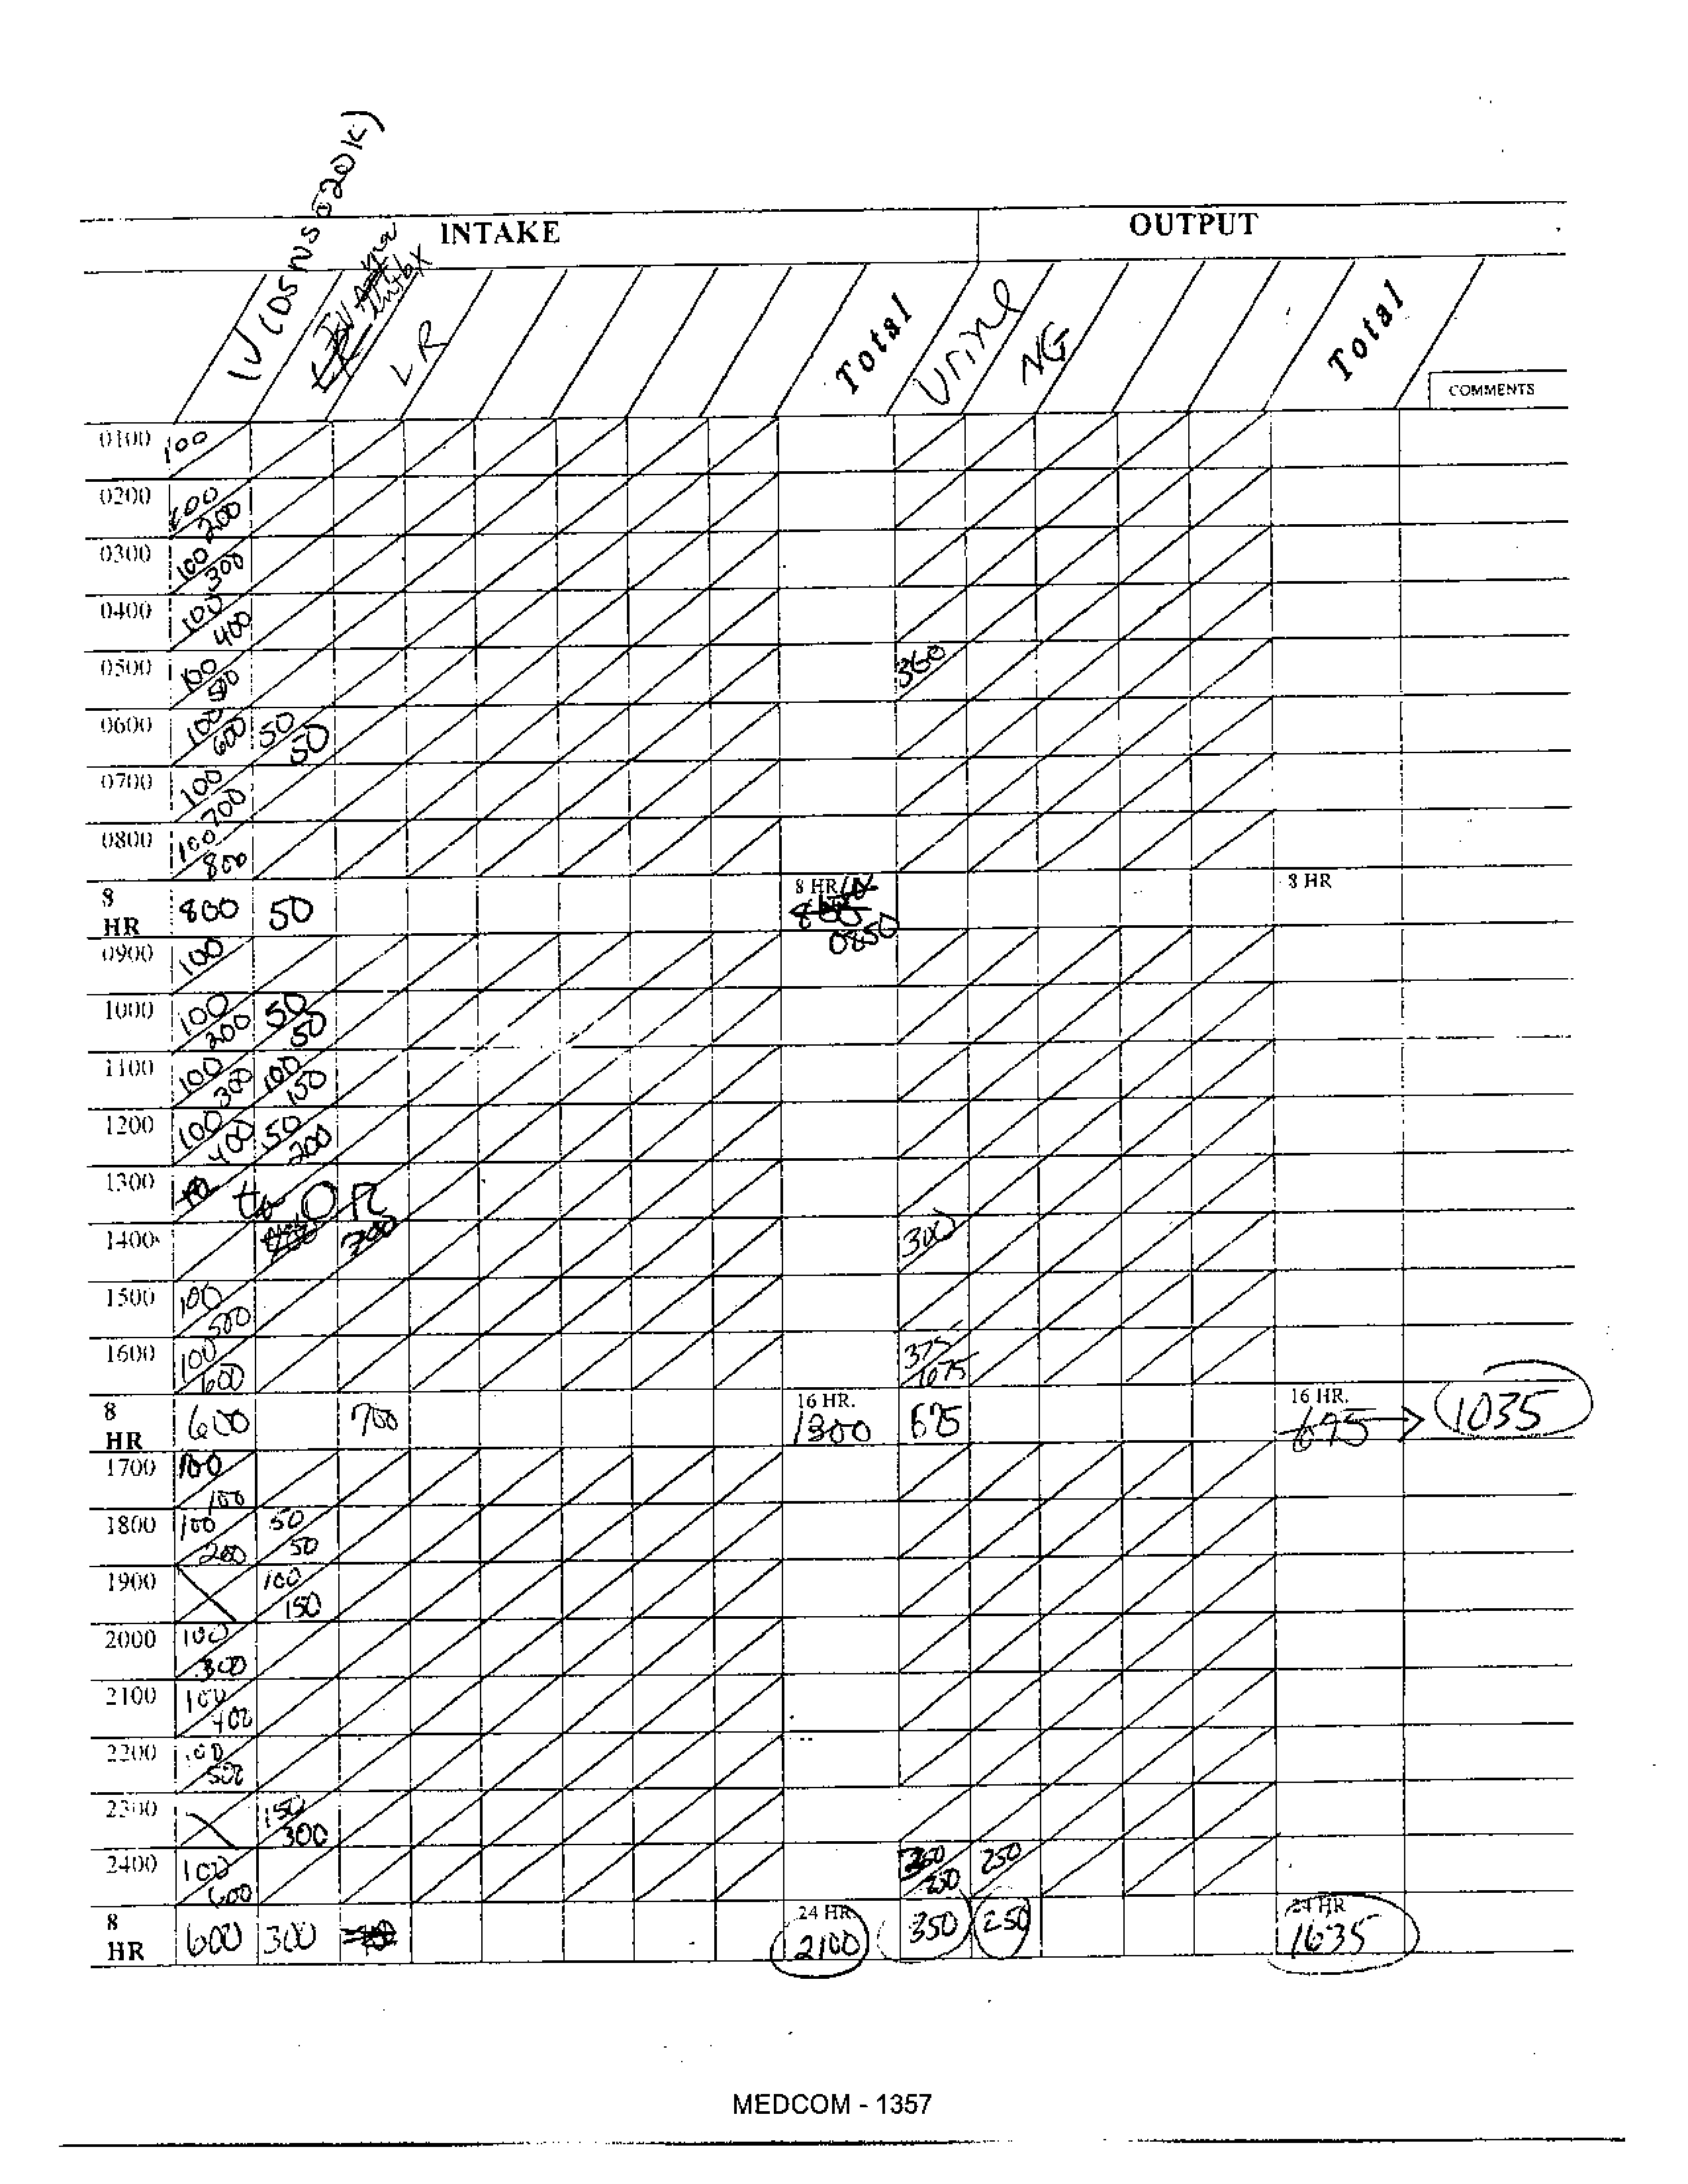 INTAKE OUTPUT
IV (D5 NS c 20 K) IV Antbx LR Total Urine NG Total
COMMENTS
0100 100
0200 100 200
0300 100 300
0400 100 400
0500 100 500 360
0600 100 600 50 50
0700 100 700
0800 100 800
8 HR 800 50 8 HR 0850 8 HR
0900 100
1000 100 200 50 50
1100 100 300 100 150
1200 100 400 50 200
1300 to OR
1400 700 300
1500 100 500
1600 100 600 375 675
8 HR 600 700 16 HR. 1300 675 16 HR. 675 → 1035
1700 100 100
1800 100 200 50 50
1900 100 150
2000 100 300
2100 100 400
2200 100 500
2300 150 300
2400 100 600 250
8 HR 600 300 24 HR 2100 350 250 24 HR 1635
MEDCOM - 1357